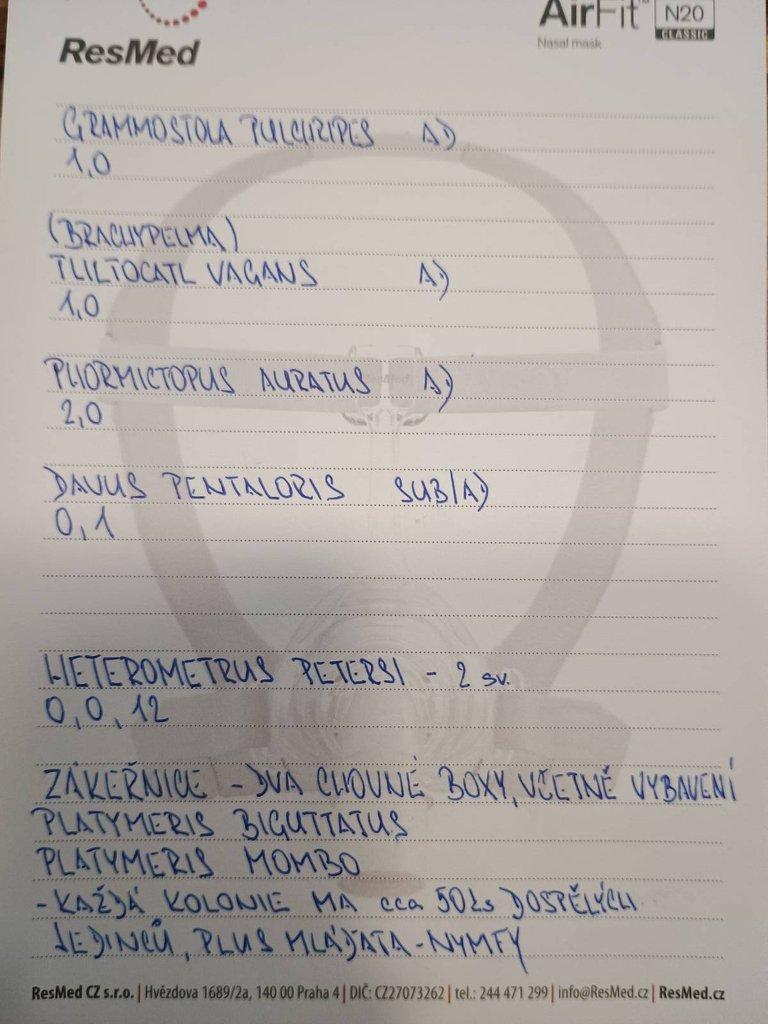 ResMed
AirFit™ N20
CLASSIC
Nasal mask
GRAMMOSTOLA PULCHRIPES AD
1,0
(BRACHYPELMA)
TLILTOCATL VAGANS AD
1,0
PHORMICTOPUS AURATUS AD
2,0
DAVUS PENTALORIS SUB/AD
0,1
HETEROMETRUS PETERSI - 2 sv.
0,0,12
ZÁKEŘNICE - DVA CHOVNÉ BOXY, VČETNĚ VYBAVENÍ
PLATYMERIS BIGUTTATUS
PLATYMERIS MOMBO
- KAŽDÁ KOLONIE MA cca 50ks DOSPĚLÝCH
JEDINCŮ, PLUS MLÁĎATA - NYMFY
ResMed CZ s.r.o. | Hvězdova 1689/2a, 140 00 Praha 4 | DIČ: CZ27073262 | tel.: 244 471 299 | info@ResMed.cz | ResMed.cz